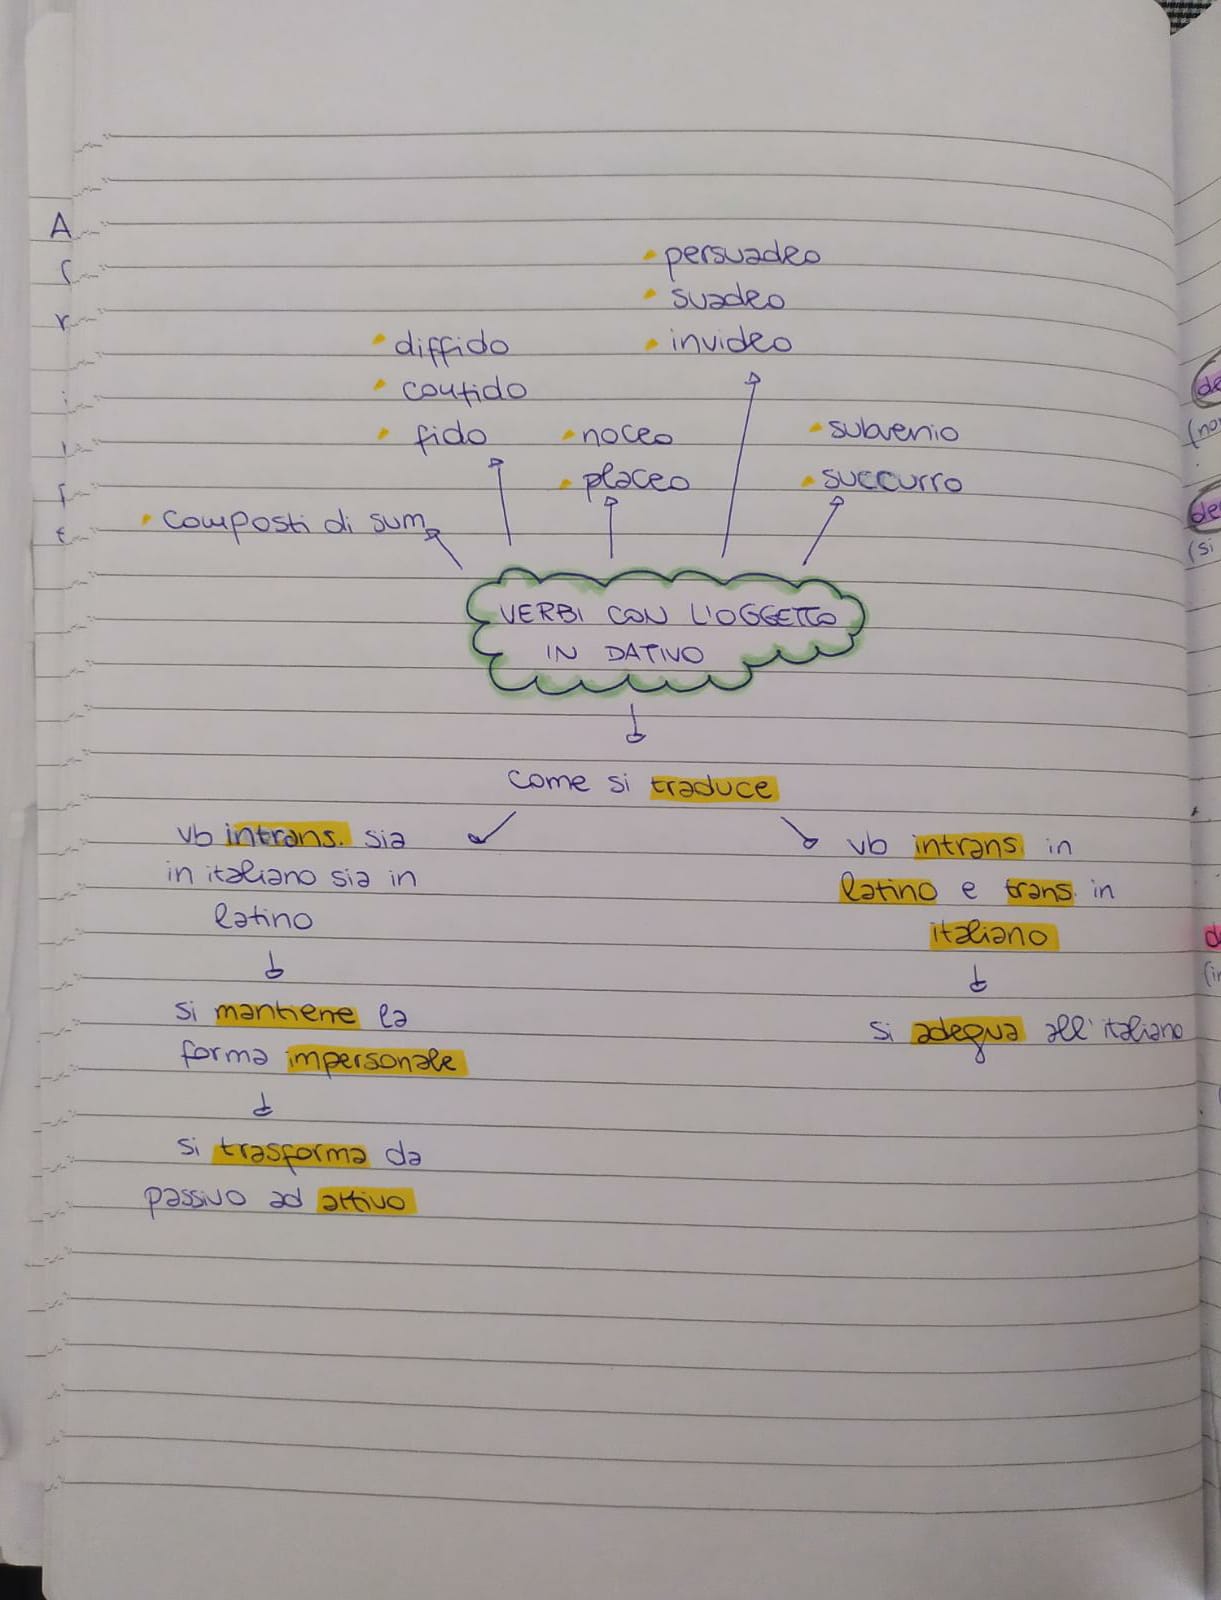 • persuadeo
• suadeo
• invideo
• diffido
• confido
• fido
• noceo
• placeo
• subvenio
• succurro
• composti di sum
VERBI CON L'OGGETTO
IN DATIVO
come si traduce
vb intrans. sia
in italiano sia in
latino
si mantiene la
forma impersonale
si trasforma da
passivo ad attivo
vb intrans. in
latino e trans. in
italiano
si adegua all'italiano
A